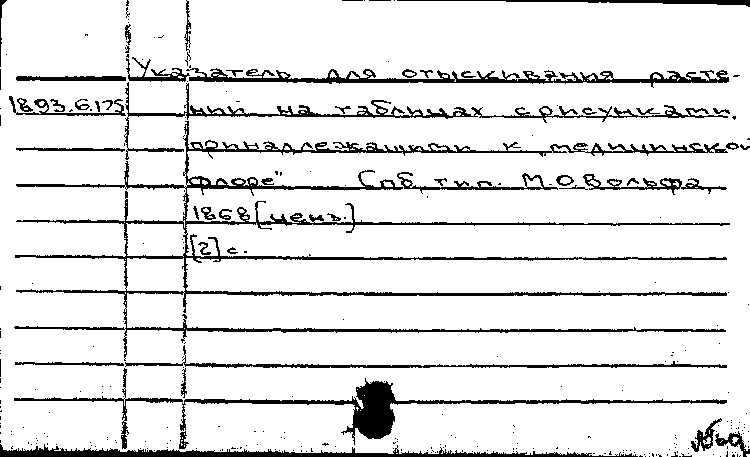 Указатель для отыскивания расте-
1893.6.175 ний на таблицах с рисунками,
принадлежащими к „медицинской
флоре" Спб, тип. М.О.Вольфа,
1868 [ценз.]
[2] с.